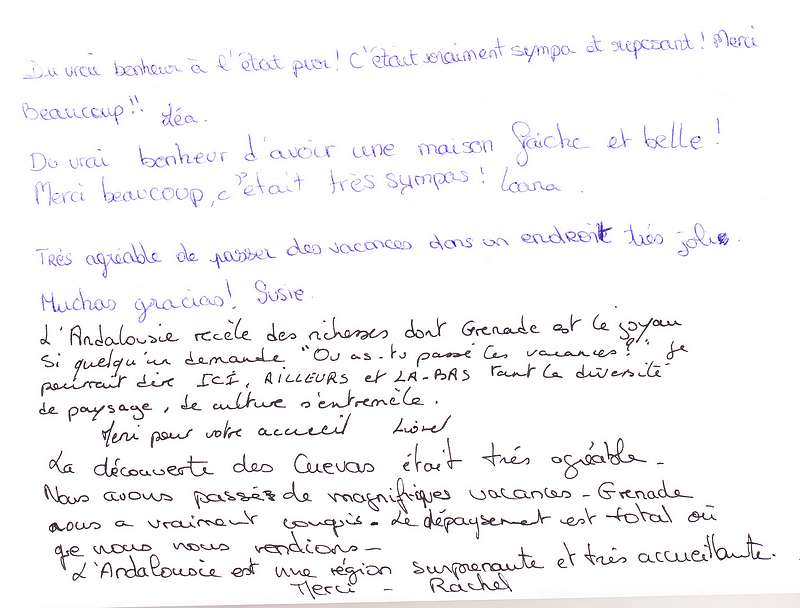 Du vrai bonheur à l'état pur! C'était vraiment sympa et reposant! Merci
Beaucoup!! Léa.
Du vrai bonheur d'avoir une maison faiche et belle!
Merci beaucoup, c'était très sympas! Loana.
Très agréable de passer des vacances dans un endroit très jolie.
Muchas gracias! Susie.
L'Andalousie recèle des richesses dont Grenade est le joyau
Si quelqu'un demande "Ou as-tu passé tes vacances?" Je
pourrait dire ICI, AILLEURS et LA-BAS tant la diversité
de paysage, de culture s'entremèle.
Merci pour votre accueil Lionel
La découverte des Cuevas était très agréable -
Nous avons passés de magnifiques vacances - Grenade
nous a vraiment conquis - Le dépaysement est total où
que nous nous rendions -
L'Andalousie est une région surprenante et très accueillante.
Merci - Rachel